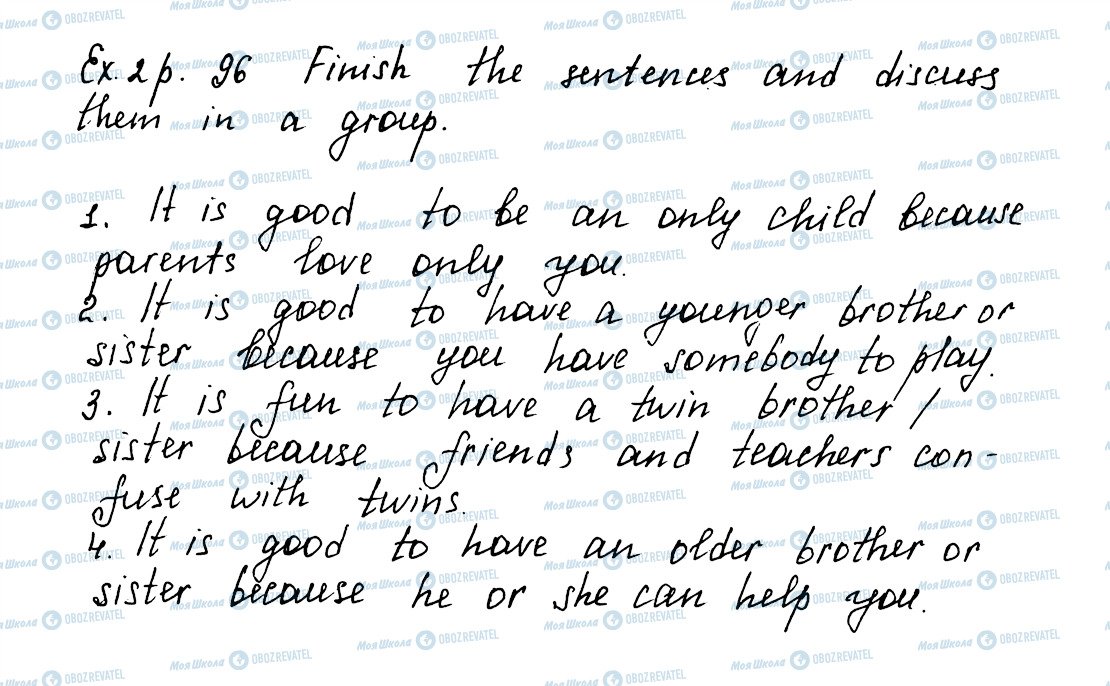 Ex. 2 p. 96 Finish the sentences and discuss
them in a group.
1. It is good to be an only child because
parents love only you.
2. It is good to have a younger brother or
sister because you have somebody to play.
3. It is fun to have a twin brother /
sister because friends and teachers con-
fuse with twins.
4. It is good to have an older brother or
sister because he or she can help you.